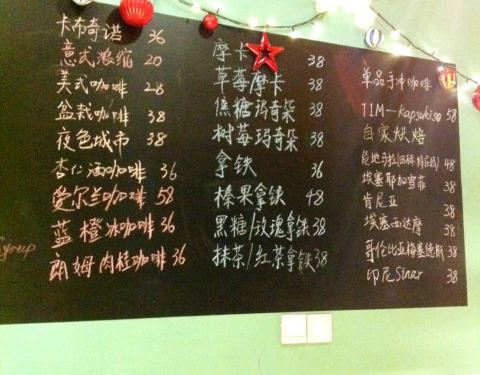 卡布奇诺 36
意式浓缩 20
美式咖啡 28
盆栽咖啡 38
夜色城市 38
杏仁酒咖啡 36
爱尔兰咖啡 58
蓝橙冰咖啡 36
朗姆肉桂咖啡 36
syrup
摩卡 38
草莓摩卡 38
焦糖玛奇朵 38
树莓玛奇朵 38
拿铁 36
榛果拿铁 48
黑糖/玫瑰拿铁 38
抹茶/红茶拿铁 38
单品手冲咖啡
TIM-Kapsukiso 58
自家烘焙
危地马拉 48
埃塞耶加雪菲 38
肯尼亚 38
埃塞西达摩 38
哥伦比亚梅塞德斯 38
印尼Sinar 38